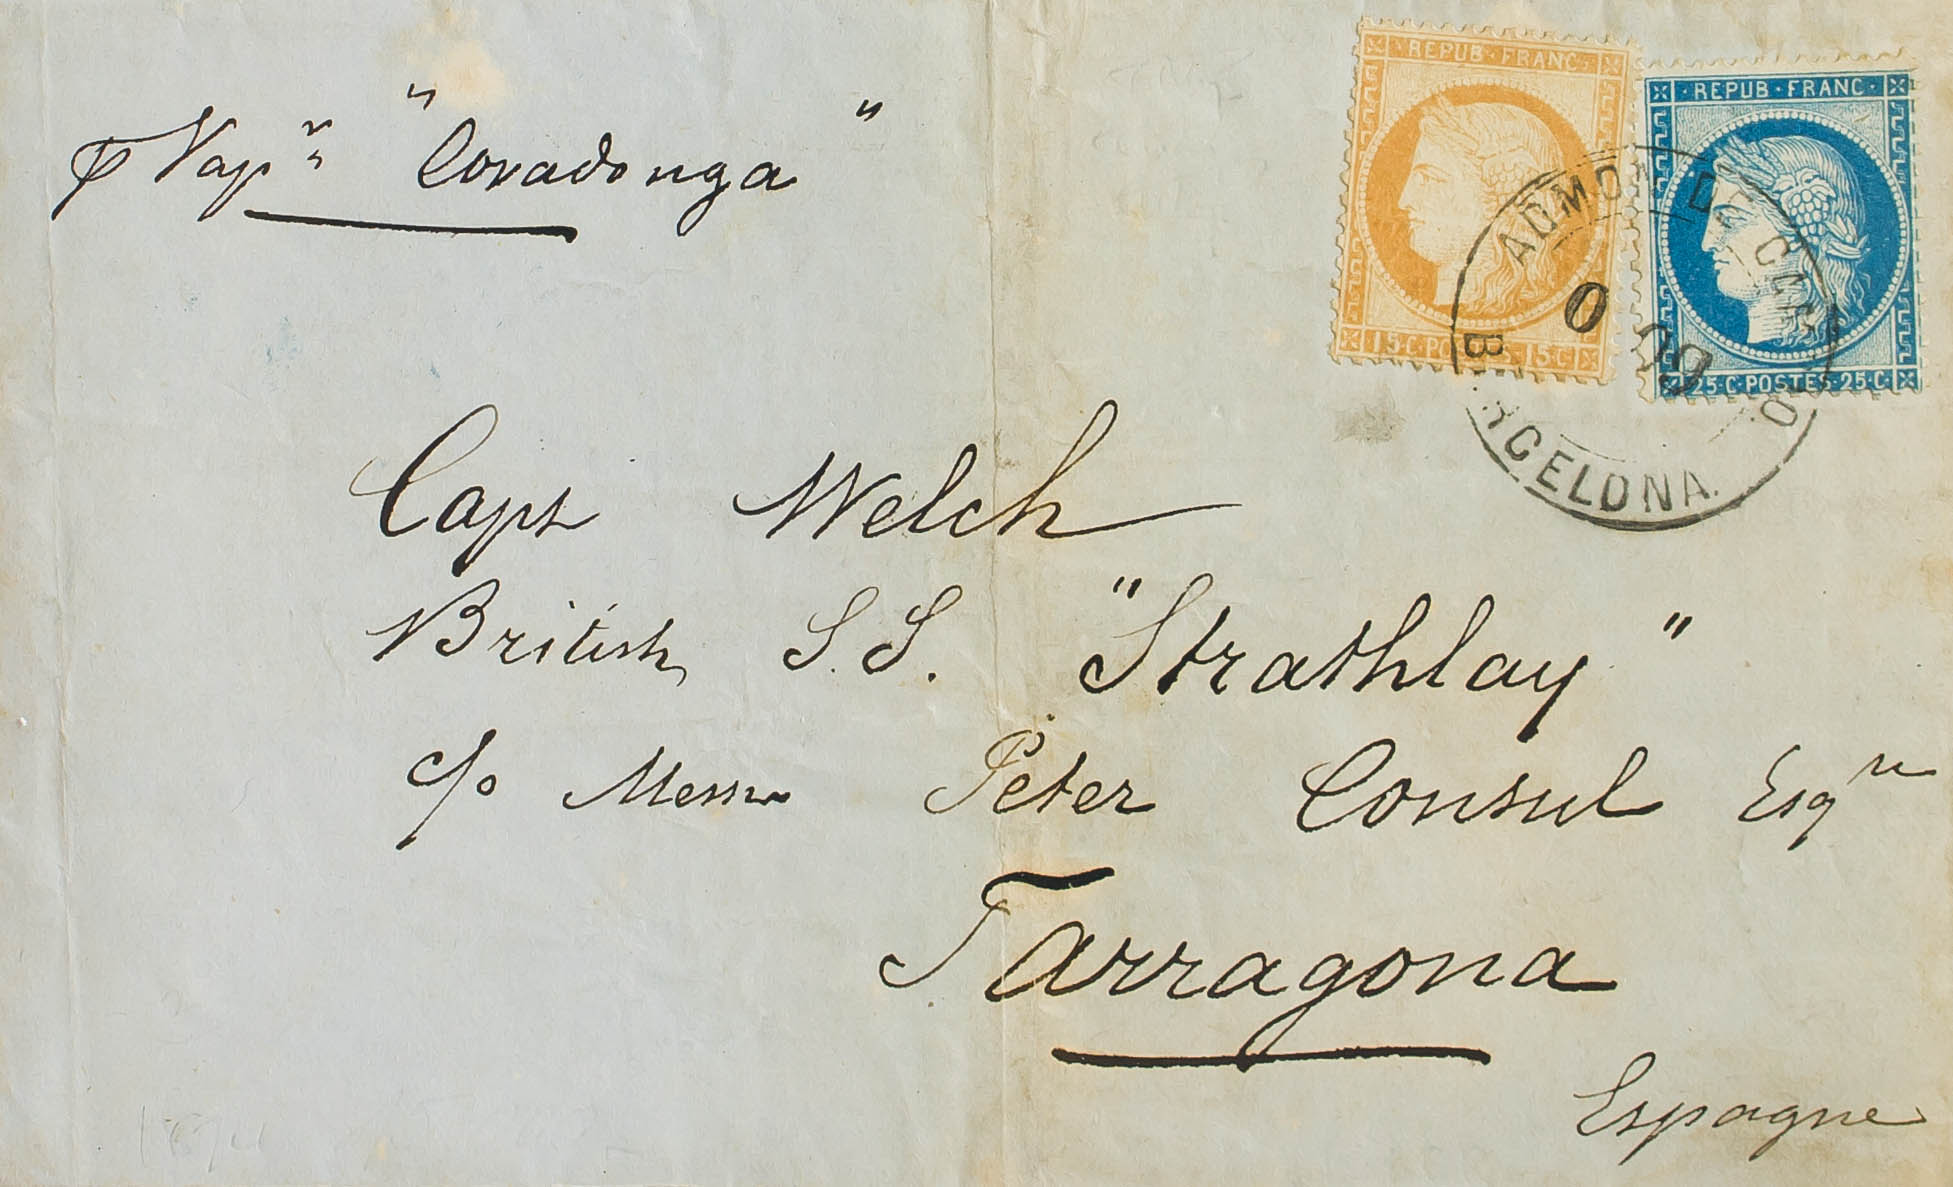 p Vapr "Covadonga"
REPUB·FRANC·
15·C·POSTES·15·C
REPUB·FRANC·
25·C·POSTES·25·C
ADMON DE CAMBIO
BARCELONA.
Capt Welch
British S.S. "Strathlay"
c/o Messrs Peter Consul Esqre
Tarragona
Espagne
1874